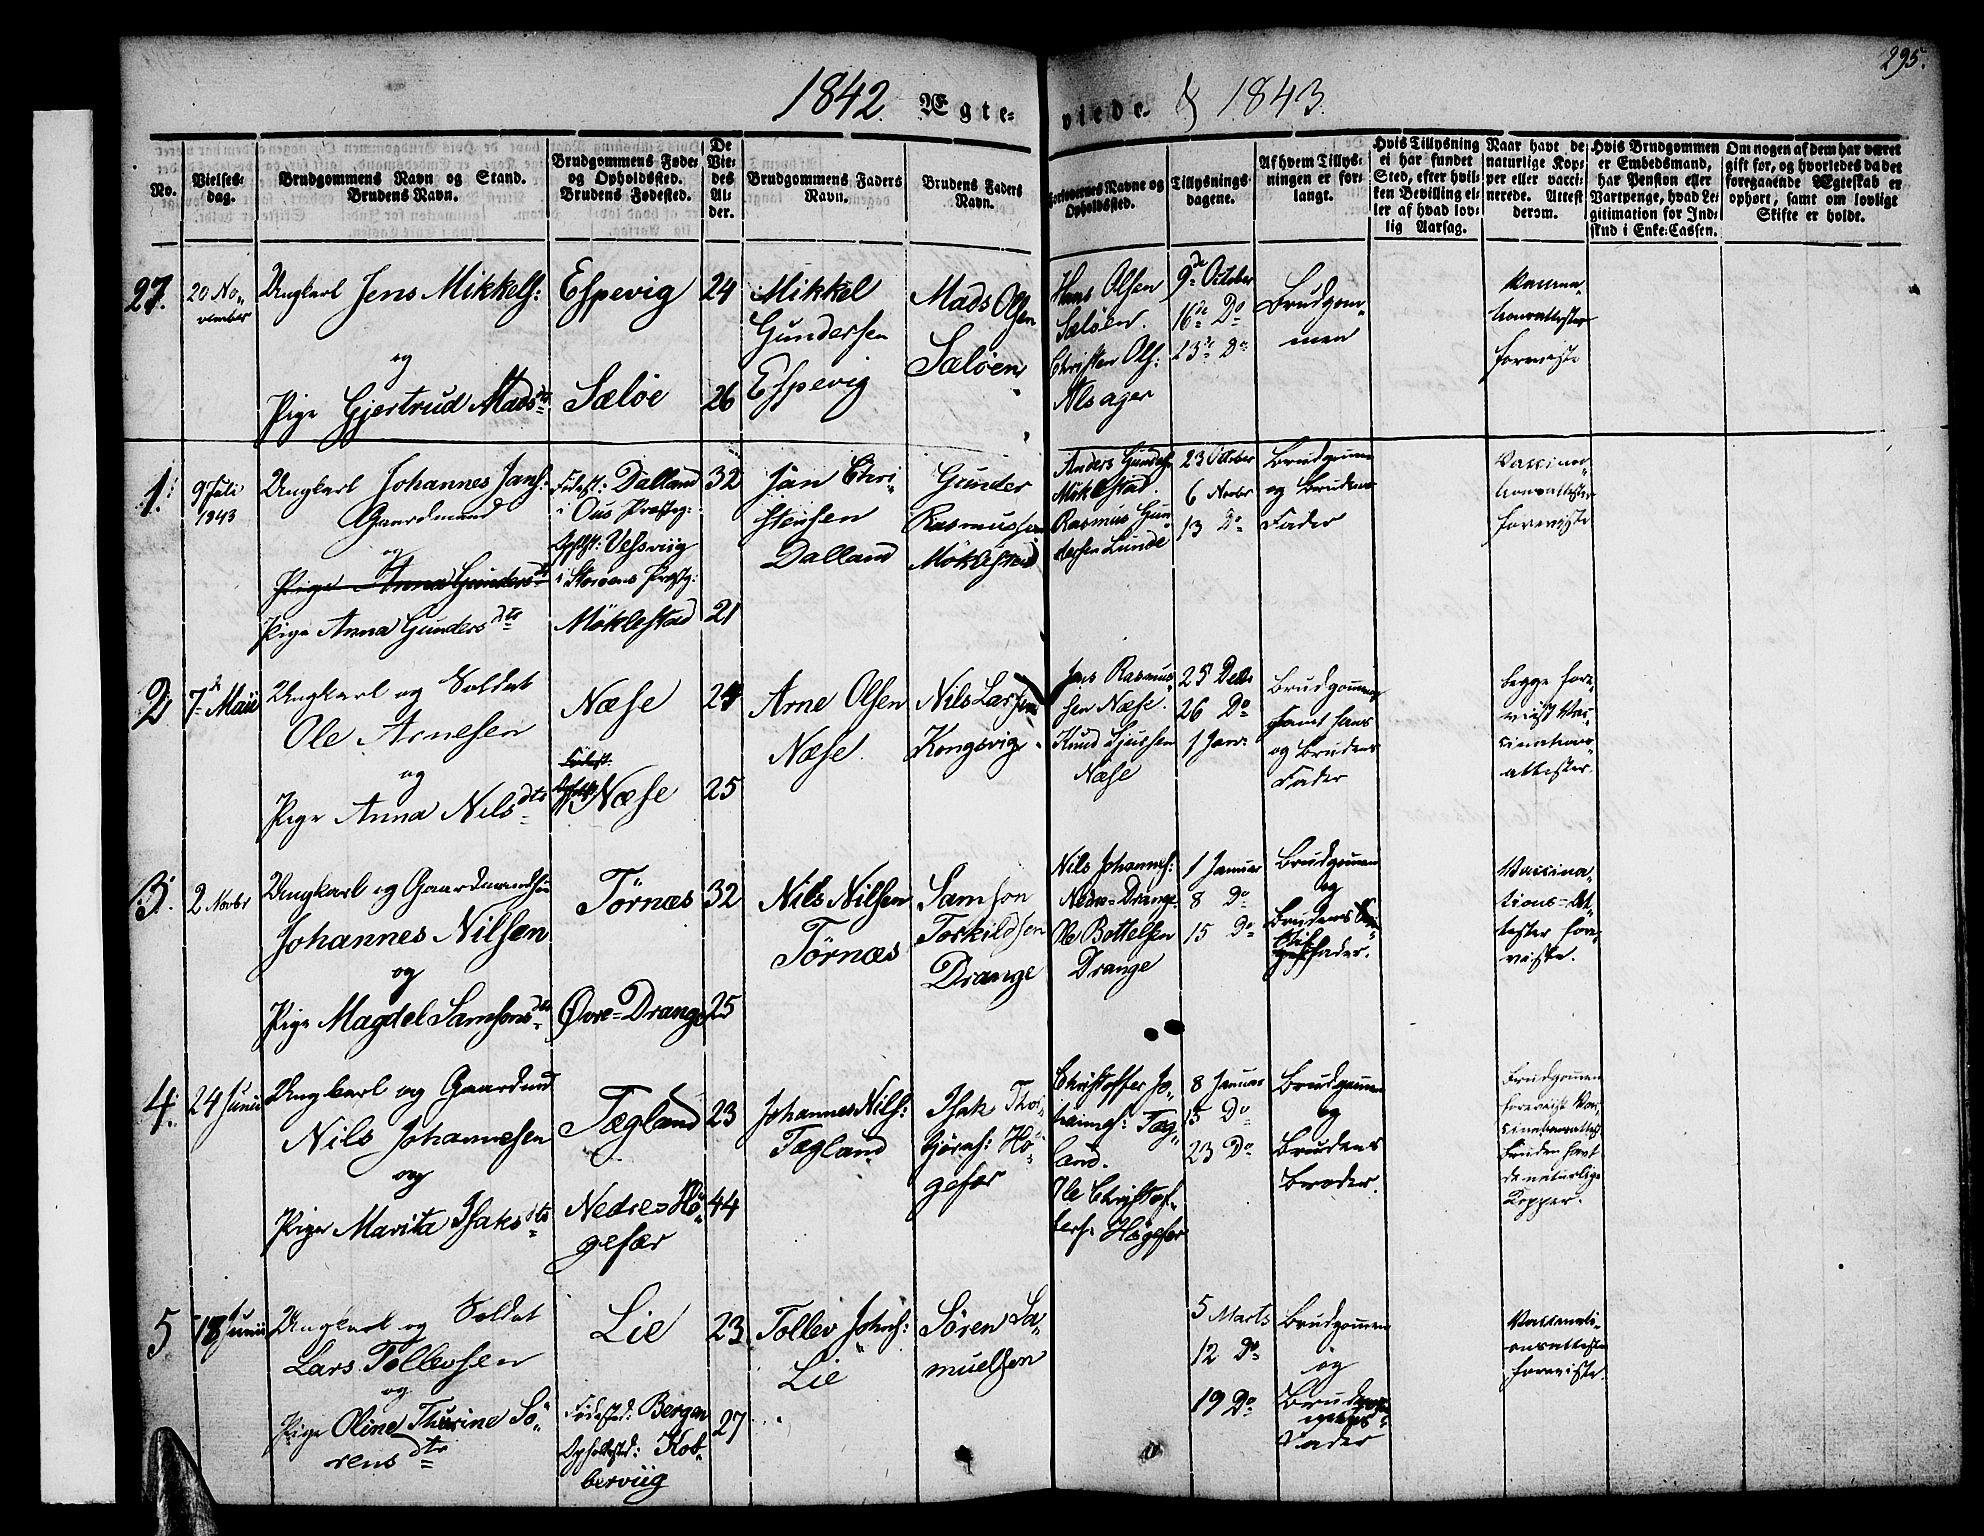 295.
1842 Ægte-
viede. & 1843.
No.
Vielses-
dag.
Brudgommens Navn og Stand.
Brudens Navn.
Brudgommens Føde-
og Opholdssted.
Brudens Fødested.
De
Vie-
des
Al-
der.
Brudgommens Faders
Navn.
Brudens Faders
Navn.
Forlovernes Navne og
Opholdssted.
Tillysnings-
dagene.
Af hvem Tillys-
ningen er for-
langt.
Hvis Tillysning
ei har fundet
Sted, efter hvil-
ken Bevilling el-
ler af hvad lov-
lig Aarsag.
Naar havt de
naturlige Kop-
per eller vacci-
nerede. Attest
derom.
Hvis Brudgommen
er Embedsmand,
har Pension eller
Vartpenge, hvad Le-
gitimation for Ind-
skud i Enke-Cassen.
Om nogen af dem har været
gift før, og hvorledes da det
foregaaende Ægteskab er
ophørt, samt om lovligt
Skifte er holdt.
27.
20 No-
vember
Ungkarl Jens Mikkels:
og
Pige Gjertrud Madsdtr
Espevig
Sæløe
24
26
Mikkel
Gundersen
Espevig
Mads Olsen
Sæløen
Hans Olsen
Sæløen.
Christen Ols:
Alsager
9de October
16de Do
23de Do
Brudgom-
men
Vaccina-
tionsattester
foreviste
1.
9 Juli
1843
Ungkarl Johannes Jans:
Gaardmand
og
Pige Anna Gundersdtr
Pige Anna Gundersdtr
Fødest: Dalland
i Ous Præsteg:
Opholdst: Vessviig
i Storøens Præsteg:
Møklestad
32
21
Jan Chri-
stensen
Dalland
Gunder
Rasmussen
Møklestad
Anders Gunders:
Møklestad.
Rasmus Gun-
dersen Lunde
23 October
6 Novbr
13 Do
Brudgommen
og Brudens
Fader
Vaccina-
tionsattester
foreviste
2
7de Maii
Ungkarl og Soldat
Ole Arnesen
og
Pige Anna Nilsdtr
Næse
Fødest:
Næse
24
25
Arne Olsen
Næse.
Nils Larsen
Kongsvig.
Jens Rasmus-
sen Næse.
Knud Sjursen
Næse
25 Decbr
26 Do
1 Janr
Brudgommen
samt hans
og Brudens
Fader
Begge fore-
viist Vac-
cinations-
attester.
3.
2 Novbr
Ungkarl og Gaardmandssøn
Johannes Nilsen
og
Pige Magdel Samsonsdtr
Tørnæs
Øvre-Drange
32
25
Nils Nilsen
Tørnæs
Samson
Torkildsen
Drange
Nils Johannes:
Nedre-Drange
Ole Bottelsen
Drange
1 Januar
8 Do
15 Do
Brudgommen
og
Brudens
fader.
Vaccina-
tions-At-
tester fore-
viste.
4.
24 Junii
Ungkarl og Gaardmd
Nils Johannesen
og
Pige Marita Isaksdtr
Tægland
Nedre-Hø-
gefær
23
44
Johannes Nils:
Tægland
Isak Thor-
bjørns: Hø-
gefær
Christoffer Jo-
hannes: Tæg-
land.
Ole Christof-
fers: Høgefær
8 Januar
15 Do
23 Do
Brudgommen
og
Brudens
Broder.
Brudgommen
foreviist Vac-
cinationsattest
Bruden havt
de naturlige
Kopper.
5
18 Junii
Ungkarl og Soldat
Lars Tollevsen
og
Pige Oline Thurine Sø-
rensdtr
Lie
Fødested: Bergen
Opholdsted: Kob-
berviig
23
27
Tollev Johns:
Lie
Søren Sa-
muelsen
5 Marts
12 Do
19 Do
Brudgommen
og
Fader
Vaccinati-
onsattester
foreviste.